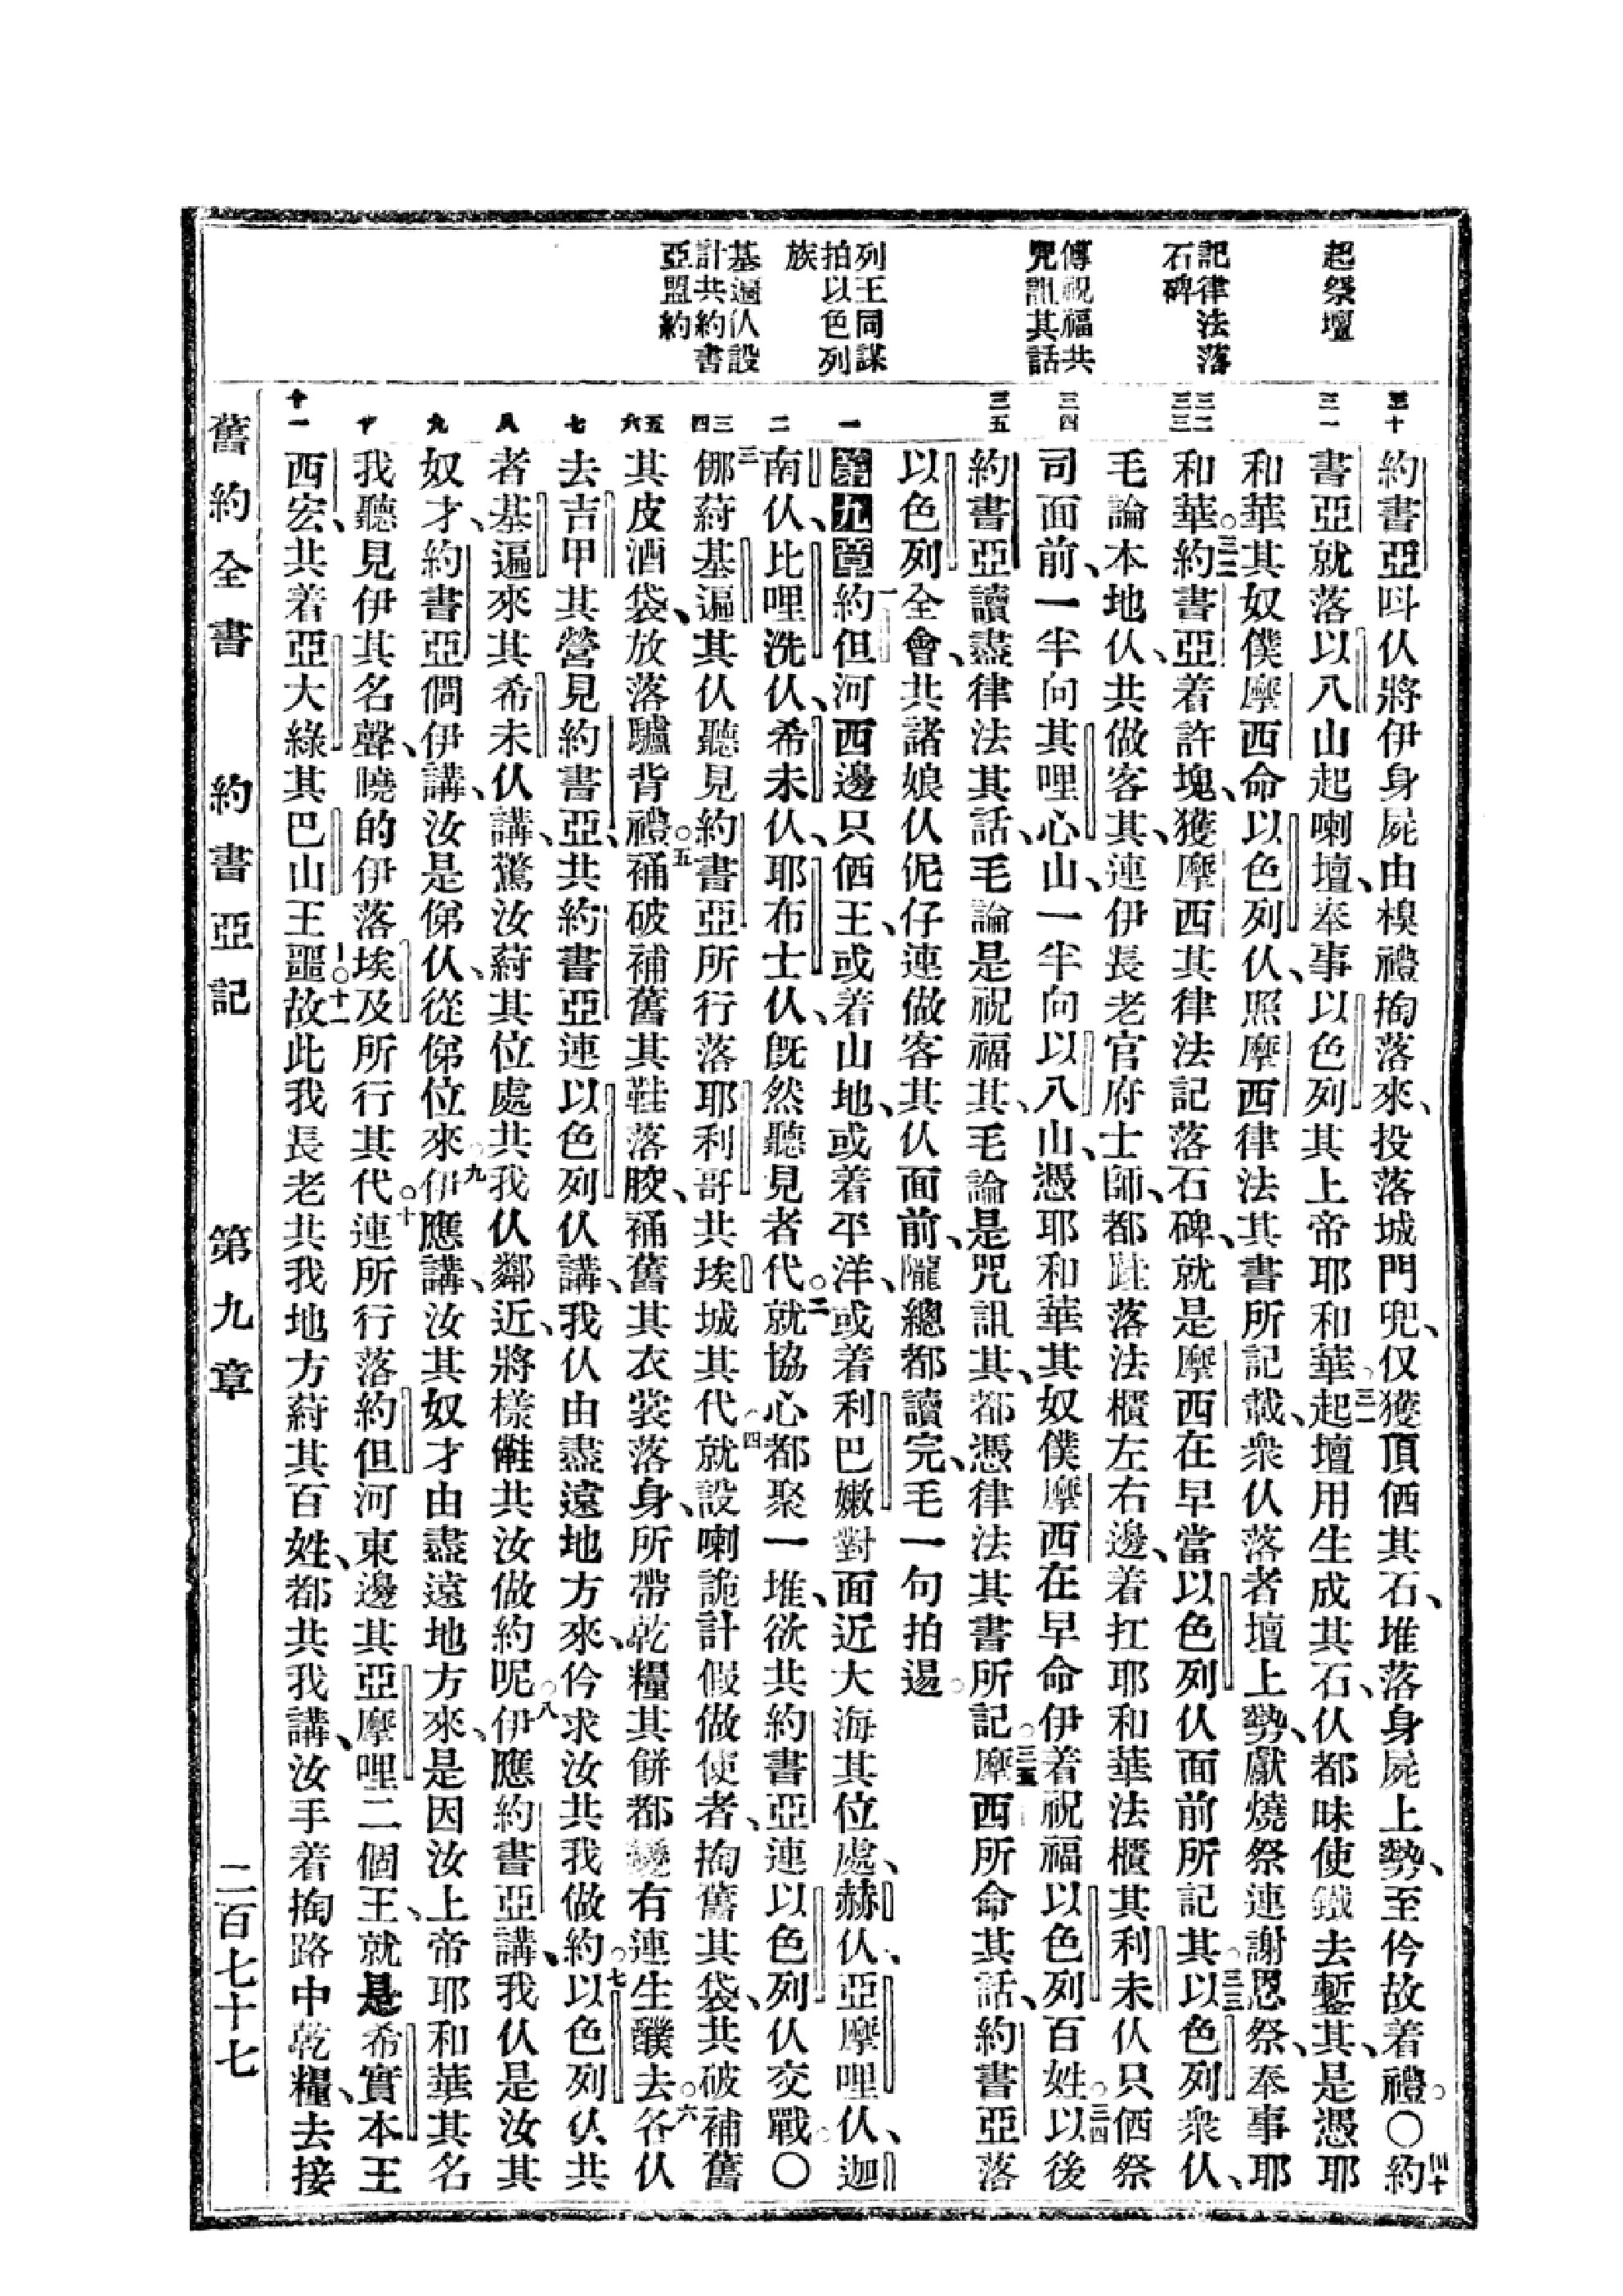 起祭壇
記律法落
石碑
傳祝福共
咒詛其話
列王同謀
拍以色列
族
基遍仈設
計共約書
亞盟約
三十
三一
三二
三三
三四
三五
一
二
三
四
五
六
七
八
九
十
十一
約書亞呌仈將伊身屍由模禮掏落來、投落城門兜、仅獲頂𠆧其石、堆落身屍上勢、至仱故着禮。〇三十約
書亞就落以八山起喇壇、奉事以色列其上帝耶和華。三一起壇用生成其石、仈都昧使鐵去鏨其、是憑耶
和華其奴僕摩西命以色列仈、照摩西律法其書所記戴、衆仈落者壇上勢、獻燒祭連謝恩祭、奉事耶
和華。三二約書亞着許塊、獲摩西其律法記落石碑、就是摩西在早當以色列仈面前所記其。三三以色列衆仈、
毛論本地仈、共做客其、連伊長老官府士師、都跬落法櫃左右邊、着扛耶和華法櫃其利未仈只𠆧祭
司面前、一半向其哩心山、一半向以八山、憑耶和華其奴僕摩西在早命伊着祝福以色列百姓。三四以後
約書亞讀盡律法其話、毛論是祝福其、毛論是咒詛其、都憑律法其書所記。三五摩西所命其話、約書亞落
以色列全會、共諸娘仈伲仔連做客其仈面前、隴總都讀完、毛一句拍逷。
第九章 一約但河西邊只𠆧王、或着山地、或着平洋、或着利巴嫩對面近大海其位處、赫仈、亞摩哩仈、迦
南仈、比哩洗仈、希未仈、耶布士仈、旣然聽見者代。二就協心都聚一堆、欲共約書亞連以色列仈交戰。〇
三㑚葤基遍其仈聽見約書亞所行落耶利哥共埃城其代。四就設喇詭計假做使者、掏舊其袋、共破補舊
其皮酒袋、放落驢背禮。五補破補舊其鞋落骹、補舊其衣裳落身、所帶乾糧其餅都變有連生醭。六去各仈
去吉甲其營見約書亞、共約書亞連以色列仈講、我仈由盡遠地方來、仱求汝共我做約。七以色列仈共
者基遍來其希未仈講、驚汝葤其位處共我仈鄰近、將樣𣍐共汝做約呢。八伊應約書亞講、我仈是汝其
奴才、約書亞問伊講、汝是俤仈、從俤位來。九伊應講、汝其奴才由盡遠地方來、是因汝上帝耶和華其名
我聽見伊其名聲、曉的伊落埃及所行其代。十連所行落約但河東邊其亞摩哩二個王、就是希實本王
西宏、共着亞大綠其巴山王噩。十一故此我長老共我地方葤其百姓、都共我講、汝手着掏路中乾糧、去接
舊約全書　約書亞記　第九章　二百七十七